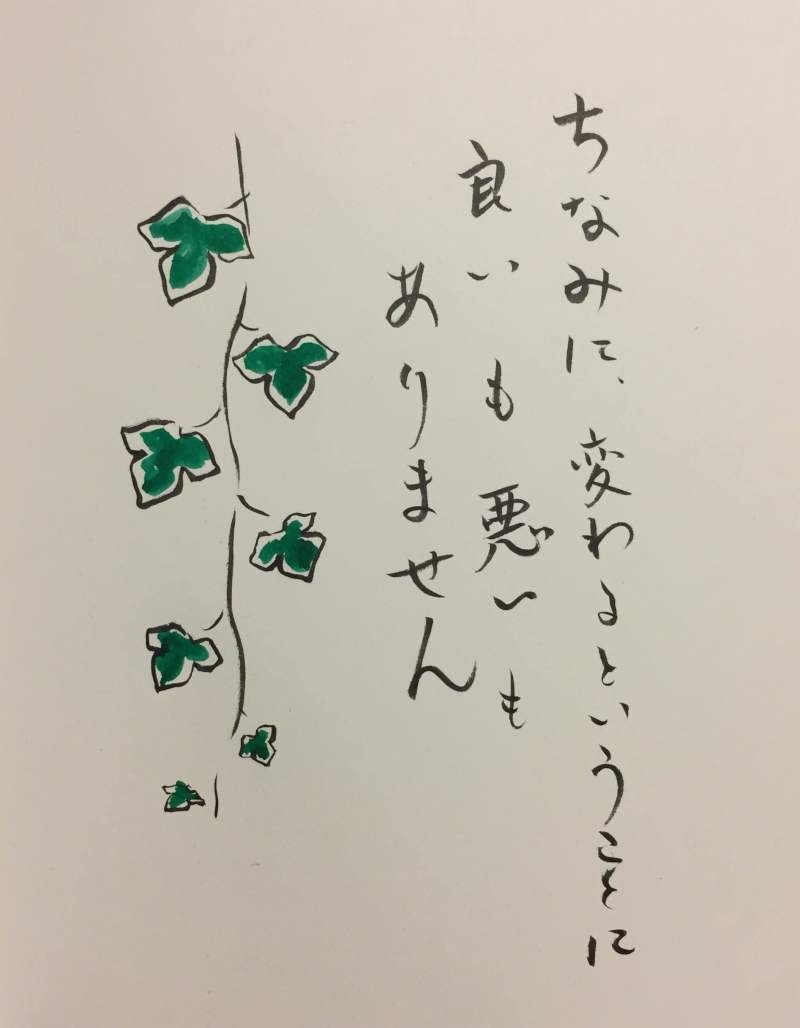 ちなみに、変わるということに
良いも悪いも
ありません